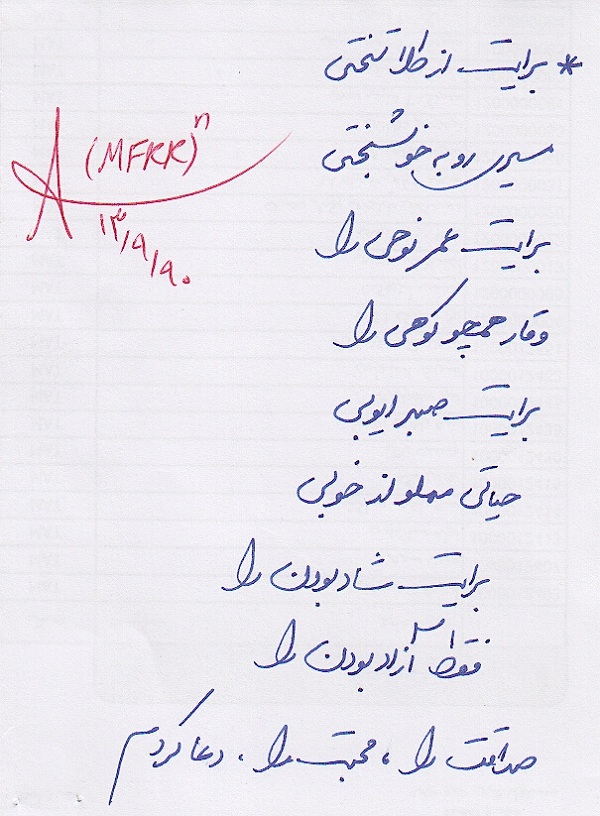 * برایت از طلا تختی
مسیری رو به خوشبختی
برایت عمر نوحی را
وقار همچو کوهی را
برایت صبر ایوبی
حیاتی مملو از خوبی
برایت شاد بودن را
فقط آزاد بودن را
صداقت را ، محبت را ، دعا کردم
(MFKK)ⁿ
۱۳/۹/۹۰